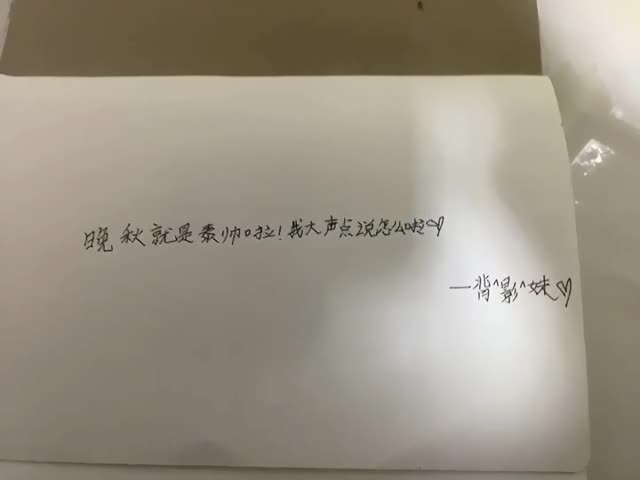 晚秋就是泰帅啦!我大声点说怎么啦♡
一背^影^妹♡